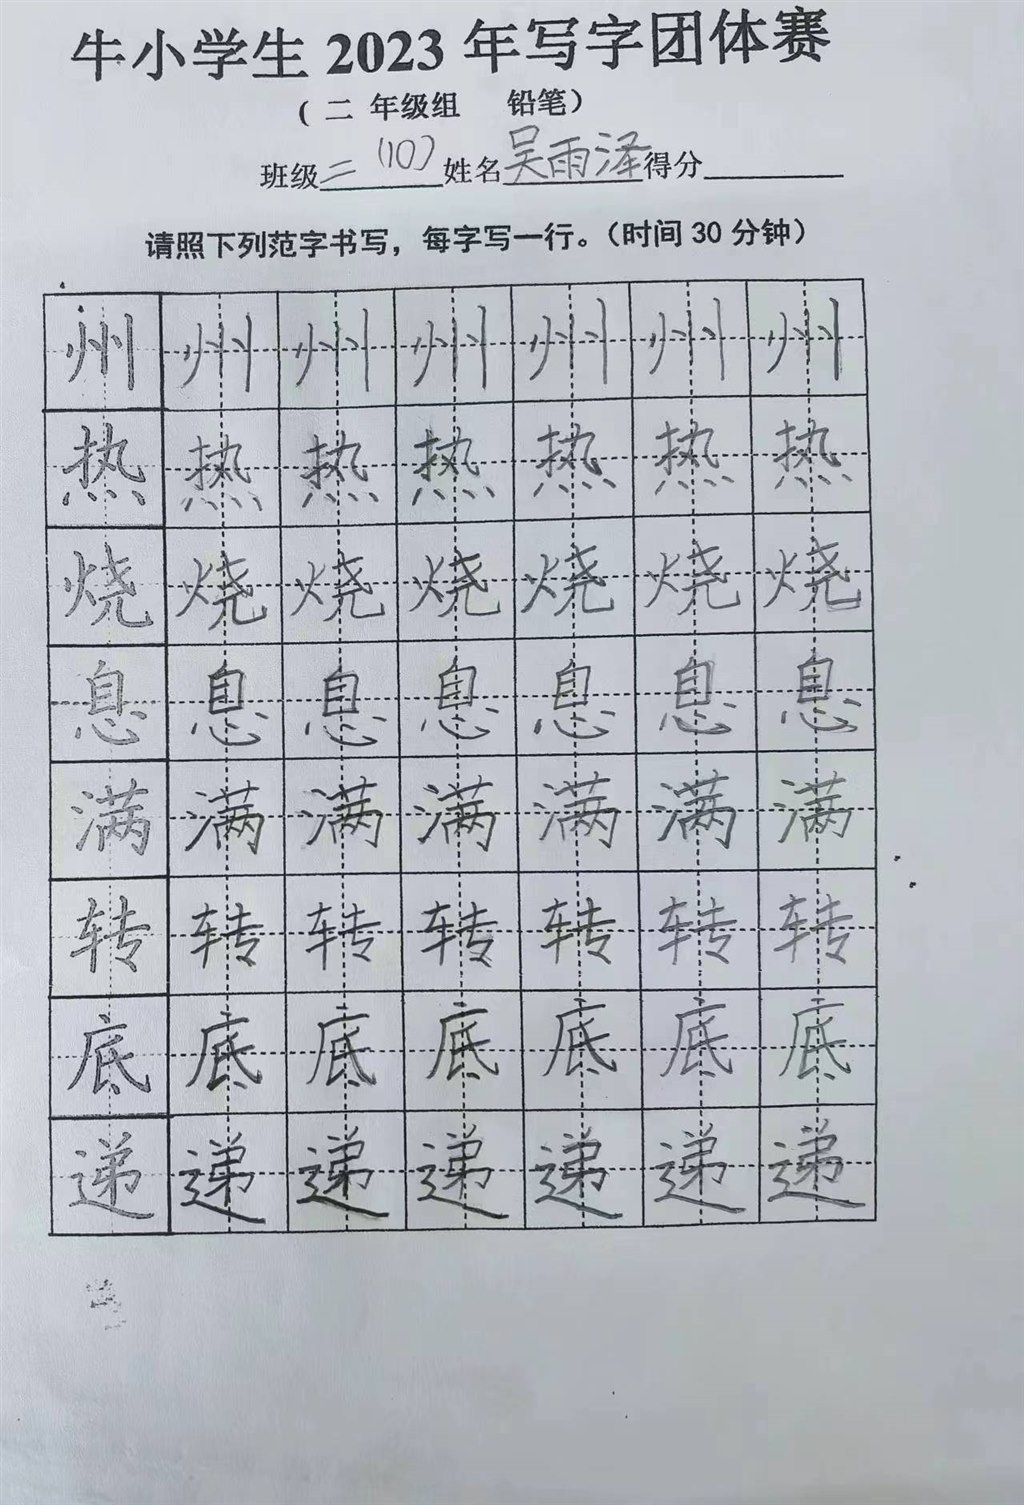 牛小学生 2023 年写字团体赛
( 二 年级组 铅笔)
班级二(10) 姓名吴雨泽得分
请照下列范字书写，每字写一行。(时间 30 分钟)
州 州 州 州 州 州 州
热 热 热 热 热 热 热
烧 烧 烧 烧 烧 烧 烧
息 息 息 息 息 息 息
满 满 满 满 满 满 满
转 转 转 转 转 转 转
底 底 底 底 底 底 底
递 递 递 递 递 递 递